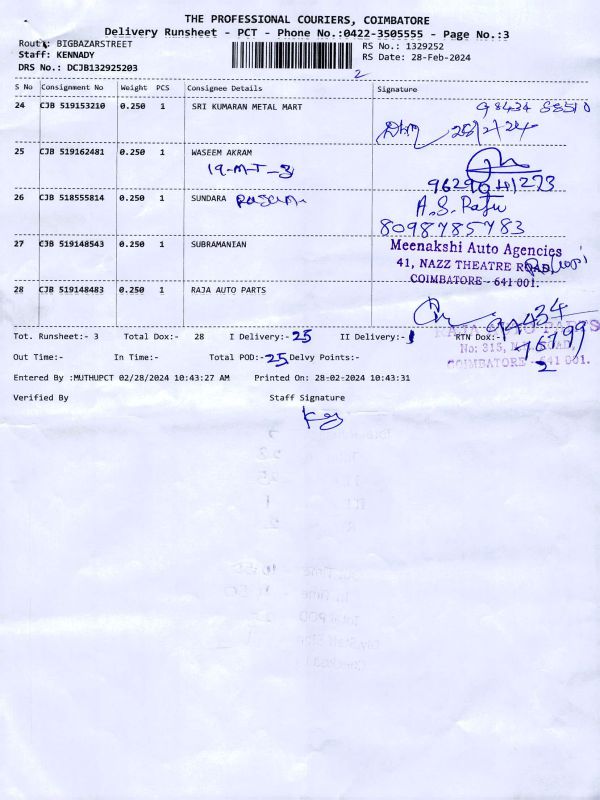 THE PROFESSIONAL COURIERS, COIMBATORE
Delivery Runsheet - PCT - Phone No.:0422-3505555 - Page No.:3
Route: BIGBAZARSTREET
RS No.: 1329252
Staff: KENNADY
RS Date: 28-Feb-2024
DRS No.: DCJB132925203
2
S No Consignment No Weight PCS Consignee Details Signature
24 CJB 519153210 0.250 1 SRI KUMARAN METAL MART
25 CJB 519162481 0.250 1 WASEEM AKRAM
19-M-T-3
26 CJB 518555814 0.250 1 SUNDARA
A.S. Raju
8098785783
27 CJB 519148543 0.250 1 SUBRAMANIAN
Meenakshi Auto Agencies
41, NAZZ THEATRE ROAD,
COIMBATORE - 641 001.
28 CJB 519148483 0.250 1 RAJA AUTO PARTS
RAJA AUTO PARTS
COIMBATORE - 641 001.
Tot. Runsheet:- 3 Total Dox:- 28 I Delivery:- 25 II Delivery:- 1 RTN Dox:- 2
Out Time:- In Time:- Total POD:- 25 Delvy Points:-
Entered By :MUTHUPCT 02/28/2024 10:43:27 AM Printed On: 28-02-2024 10:43:31
Verified By Staff Signature